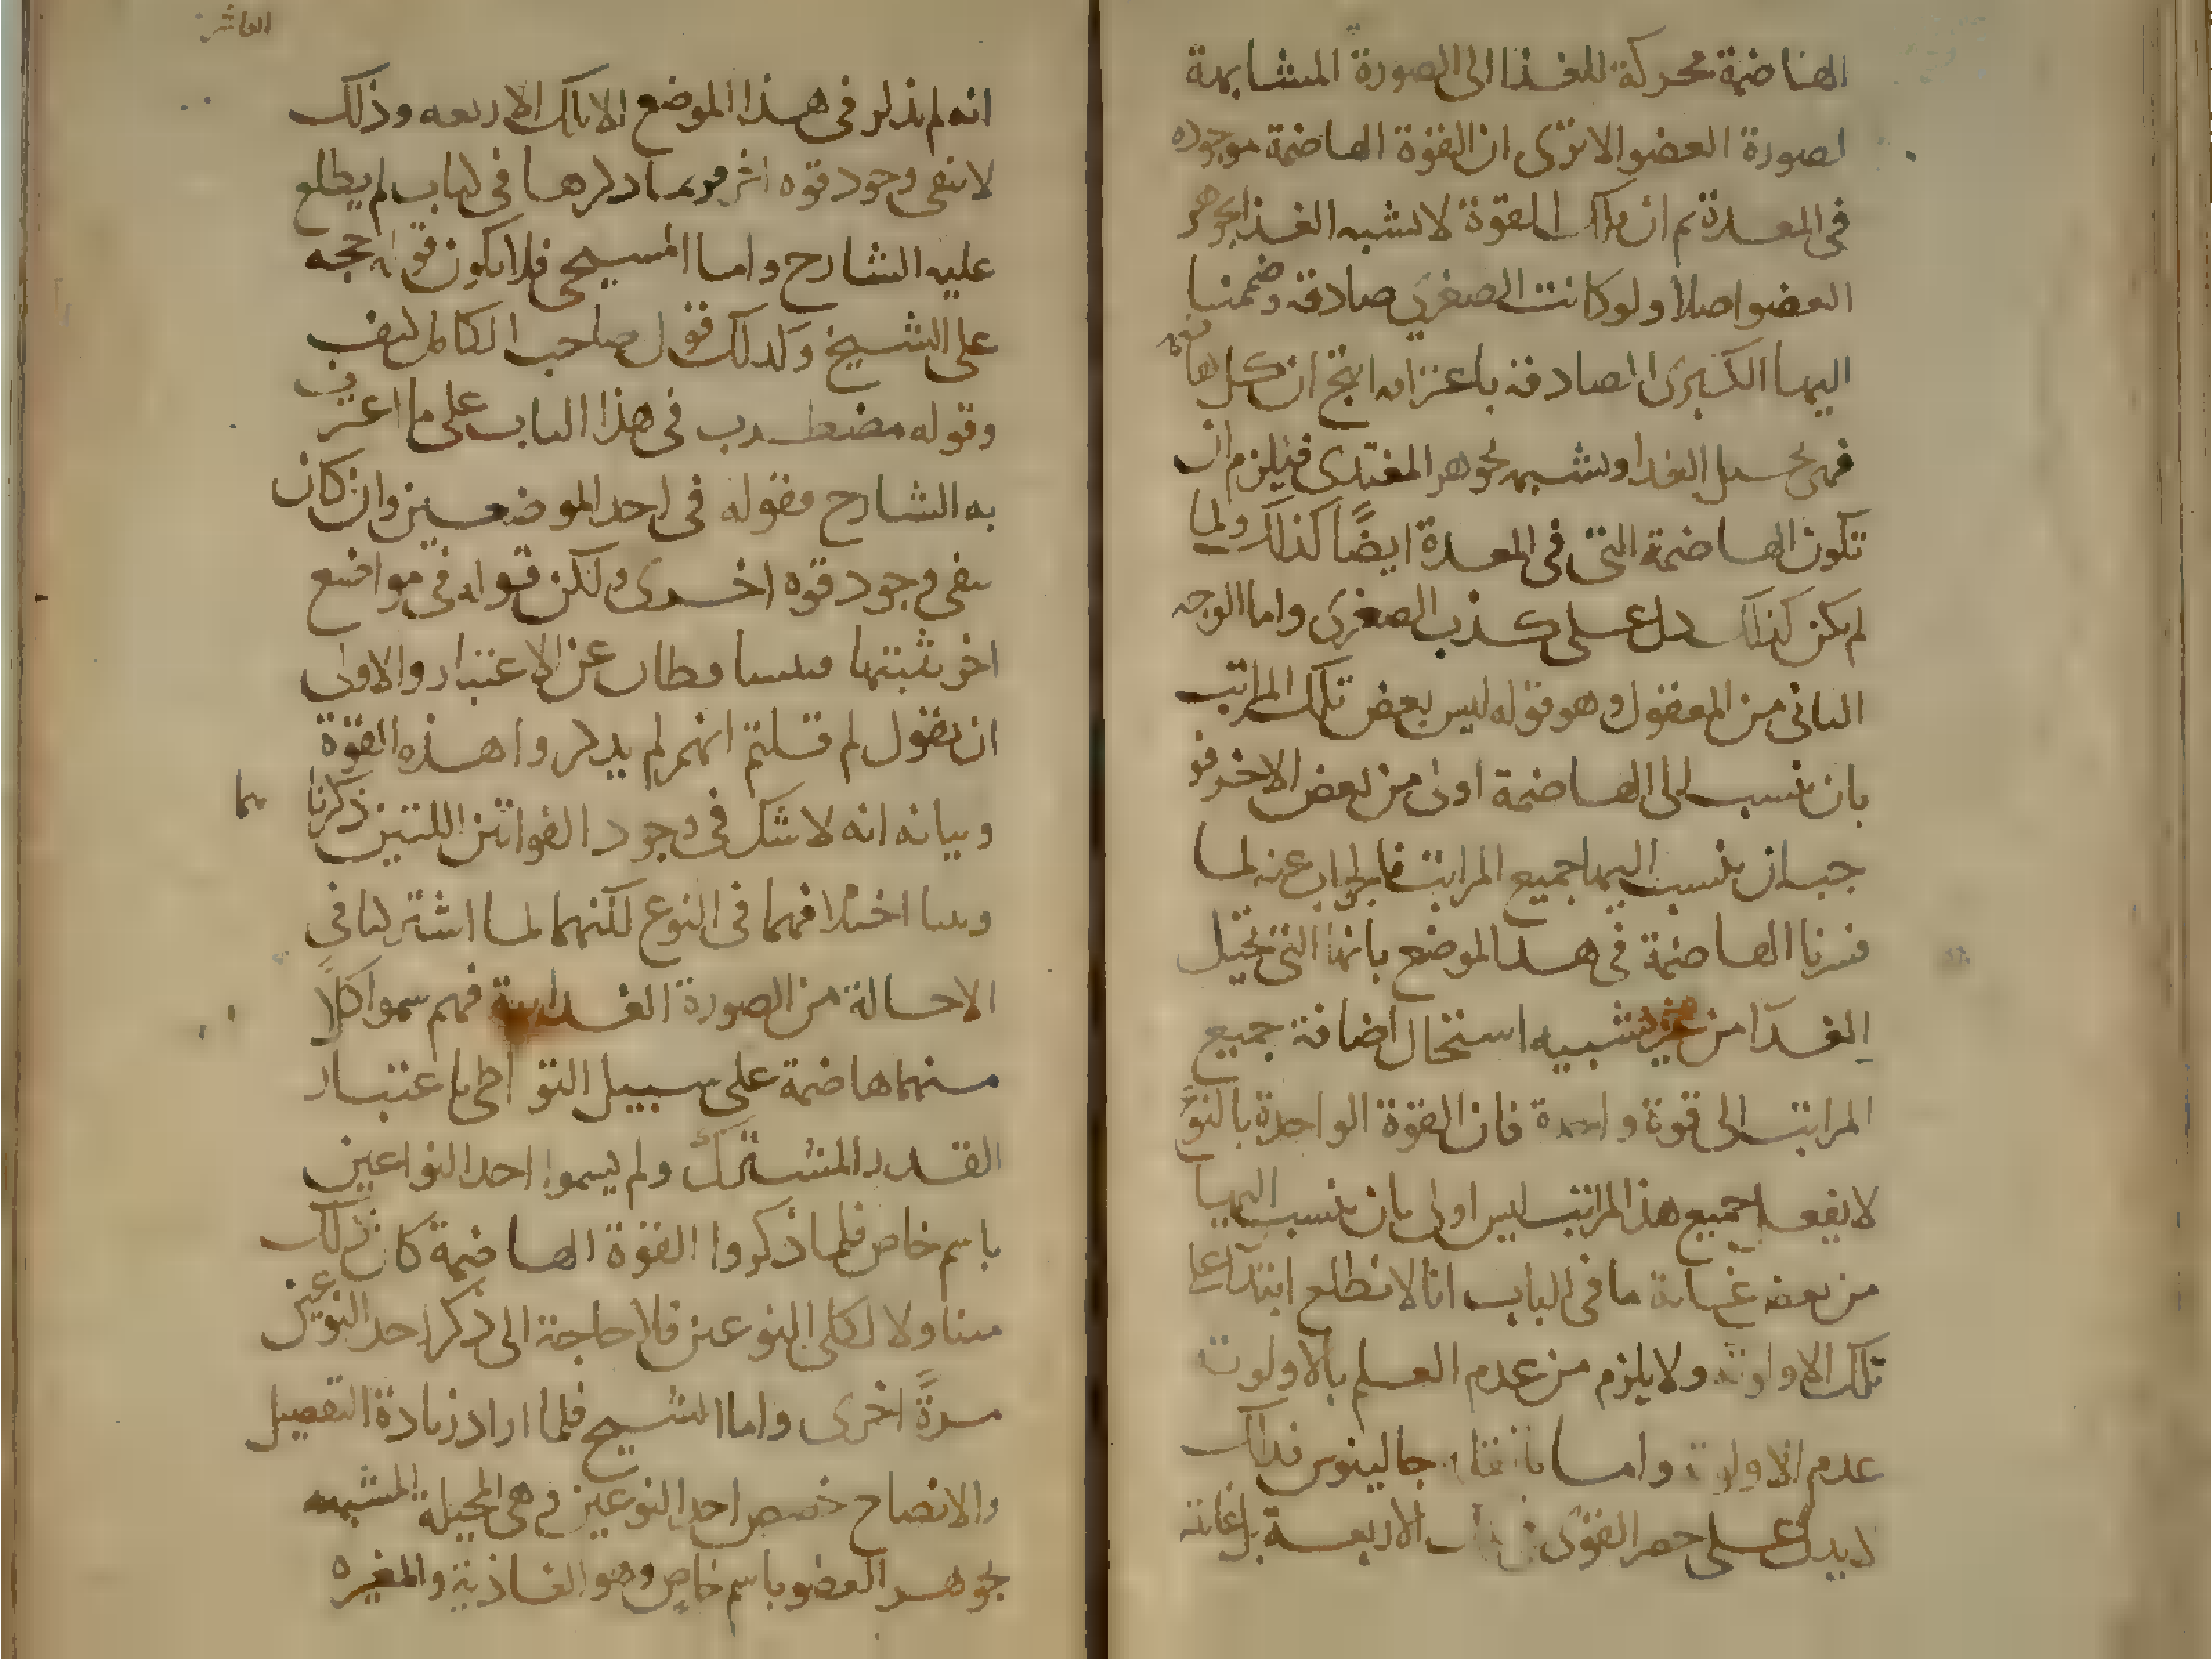 الهاضمة محركة للغذا الى الصورة المشابهة
لصورة العضو الا ترى ان القوة الهاضمة موجوده
فى المعدة ثم ان تلك القوة لا تشبه الغذا بجوهر
العضو اصلا ولو كانت الصغرى صادقة وضممنا
اليها الكبرى الصادقة باعترافه انتج ان كل هاضمة
فهى تحيل الغدا وتشبهه بجوهر المغتدى فيلزم ان
تكون الهاضمة التى فى المعدة ايضًا كذلك ولما
لم يكن كذلك دل على كذب الصغرى واما الوجه
الثانى من المعقول وهو قوله ليس بعض تلك المراتب
بان تنسب الى الهاضمة اولى من بعض الاخر فو
جب ان ينسب اليها جميع المراتب فالجواب عنه لما
فسرنا الهاضمة فى هذا الموضع بانها التى تحيل
الغدآ من غير تشبيه استحال اضافة جميع
المراتب الى قوة واحدة فان القوة الواحدة بالنوع
لا يفعل جميع هذا المراتب ليس اولى بان ينسب اليها
من بعض غاية ما فى الباب انا لا نطلع ابتدآ على
تلك الاولوية ولا يلزم من عدم العلم بالاولوية
عدم الاولوية واما ما نقل جالينوس فذلك
لا يدل على حصر القوى فى تلك الاربعة بل غايته
العاشر
انه لم يذكر فى هذا الموضع الا تلك الاربعه وذلك
لا ينفى وجود قوه اخرى ربما ذكرها فى كتاب لم يطلع
عليه الشارح واما المسيحى فلا يكون قوله حجه
على الشيخ وكذلك قول صاحب الكامل كيف
وقوله مضطرب فى هذا الباب على ما اعترف
به الشارح فقوله فى احد الموضعين وان كان
ينفى وجود قوه اخرى ولكن قوله فى مواضع
اخر يثبتها فيتساقطان عن الاعتبار والاولى
ان نقول لم قلتم انهم لم يذكروا هذه القوة
وبيانه انه لا شك فى وجود القواتين اللتين ذكرناهما
وبينا اختلافهما فى النوع لكنهما لما اشتركتا فى
الاحالة من الصورة الغذاىية فهم سموا كلًا
منهما هاضمة على سبيل التواطى باعتبار
القدر المشترك ولم يسموا احد النواعين
باسم خاص فلما ذكروا القوة الهاضمة كان ذلك
متناولا لكلى النوعين فلا حاجة الى ذكر احد النوعين
مرةً اخرى واما الشيخ فلما اراد زيادة التفصيل
والانضاح خصص احد النوعين وهى المحيلة المشبهه
بجوهر العضو باسم خاص وهو الغاذية والمغيره